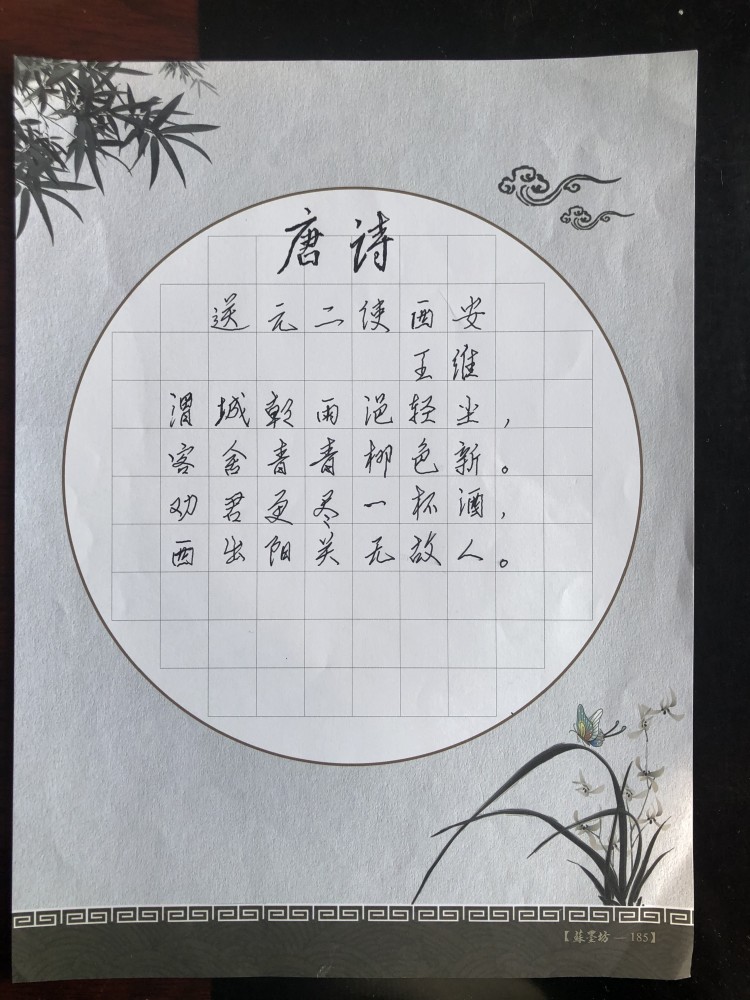 唐诗
送元二使西安
王维
渭城朝雨浥轻尘，
客舍青青柳色新。
劝君更尽一杯酒，
西出阳关无故人。
【蘇墨坊 — 185】